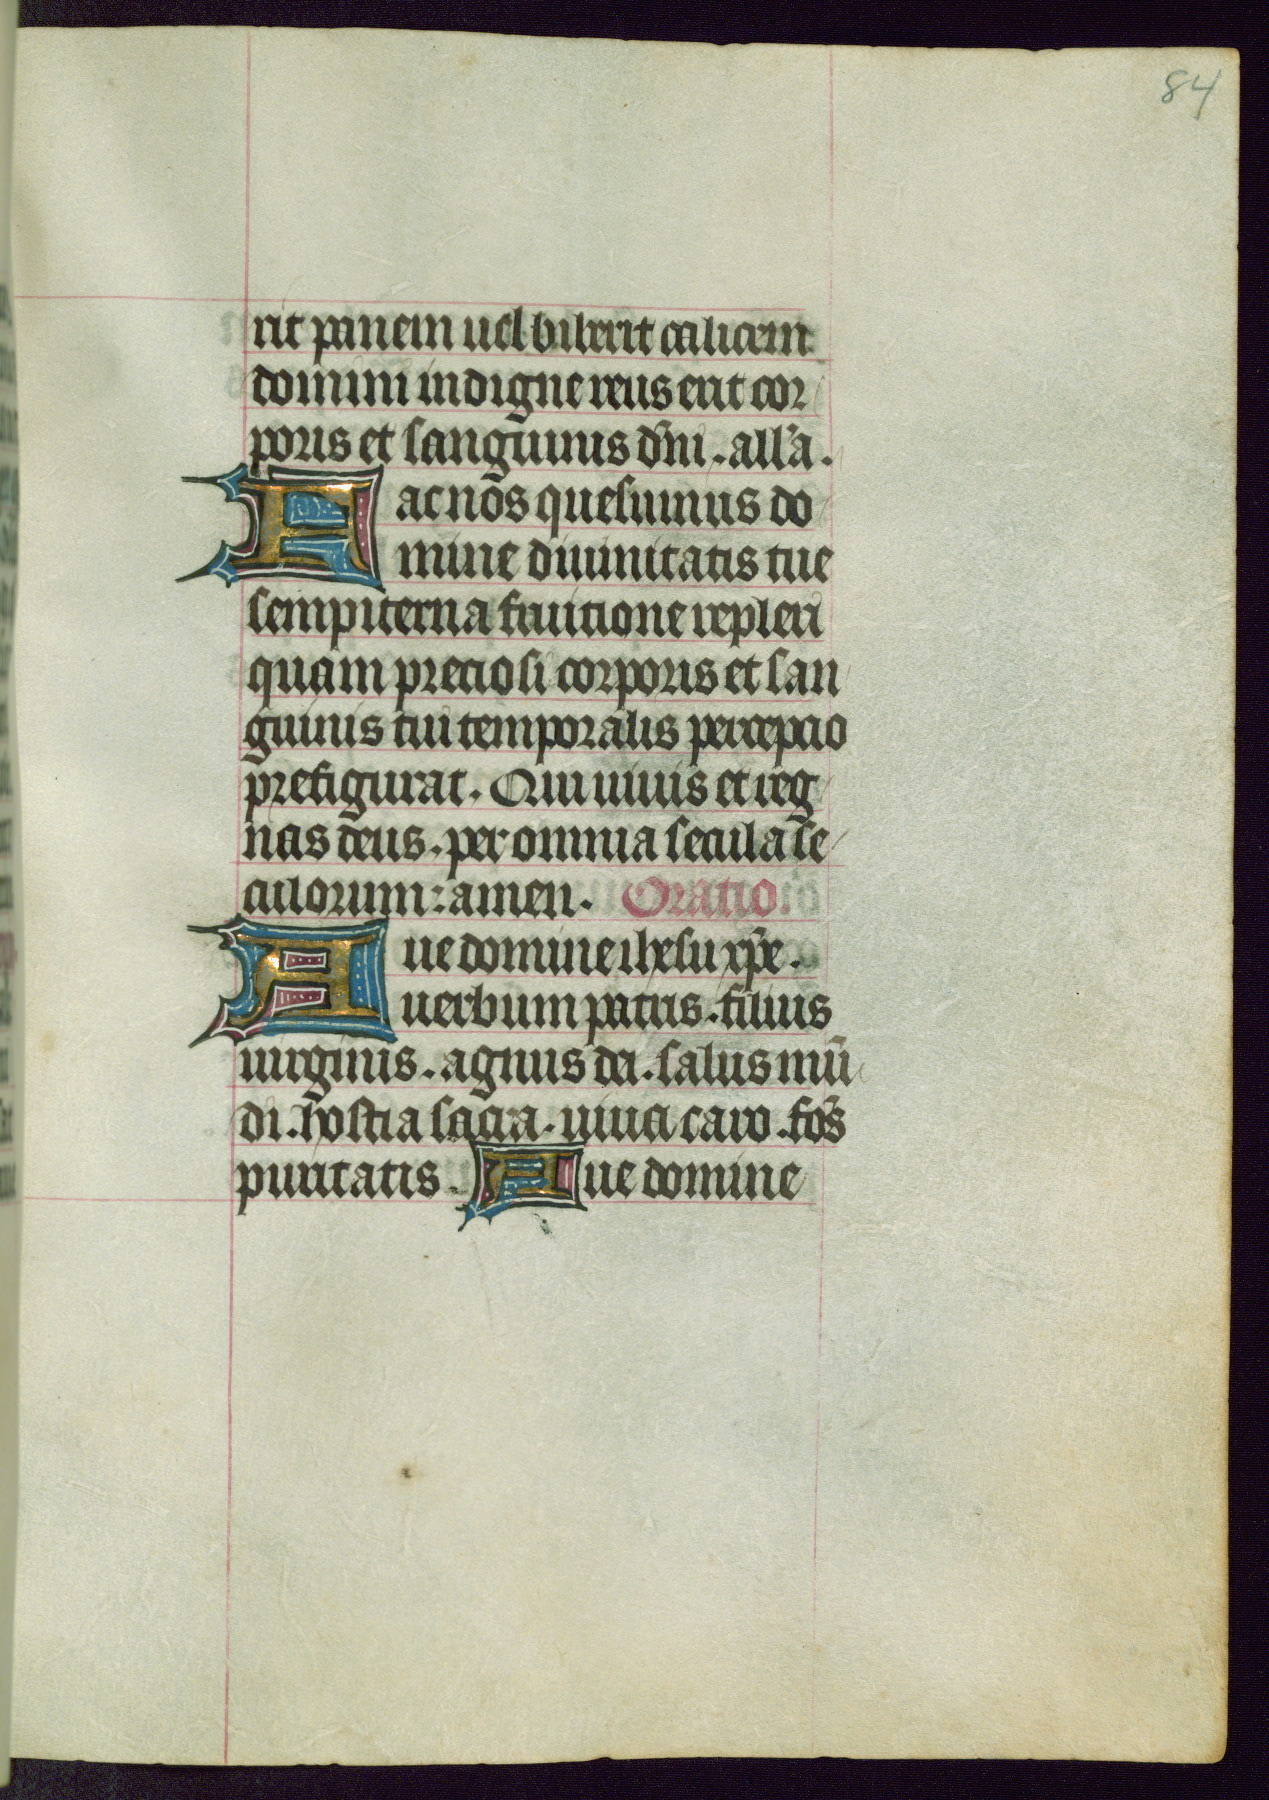 84
rit panem uel biberit calicem
domini indigne reus erit cor
poris et sanguinis dn̄i . all'a .
Fac nos quesumus do
mine diuinitatis tue
sempiterna fruitione repleri
quam preciosi corporis et san
guinis tui temporalis percepcio
prefigurat . Qui uiuis et reg
nas deus . per omnia secula se
culorum : amen . Oratio .
Aue domine ihesu xp̄e .
uerbum patris . filius
uirginis . agnus dei . salus mū
di . hostia sacra . uiua caro . fōs
puritatis . Aue domine